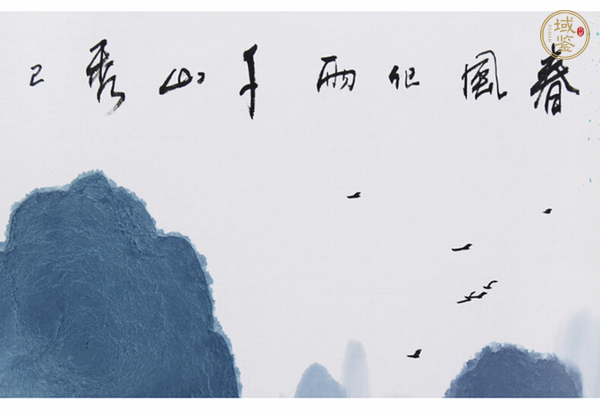 春風化雨千山秀 己
域鑒